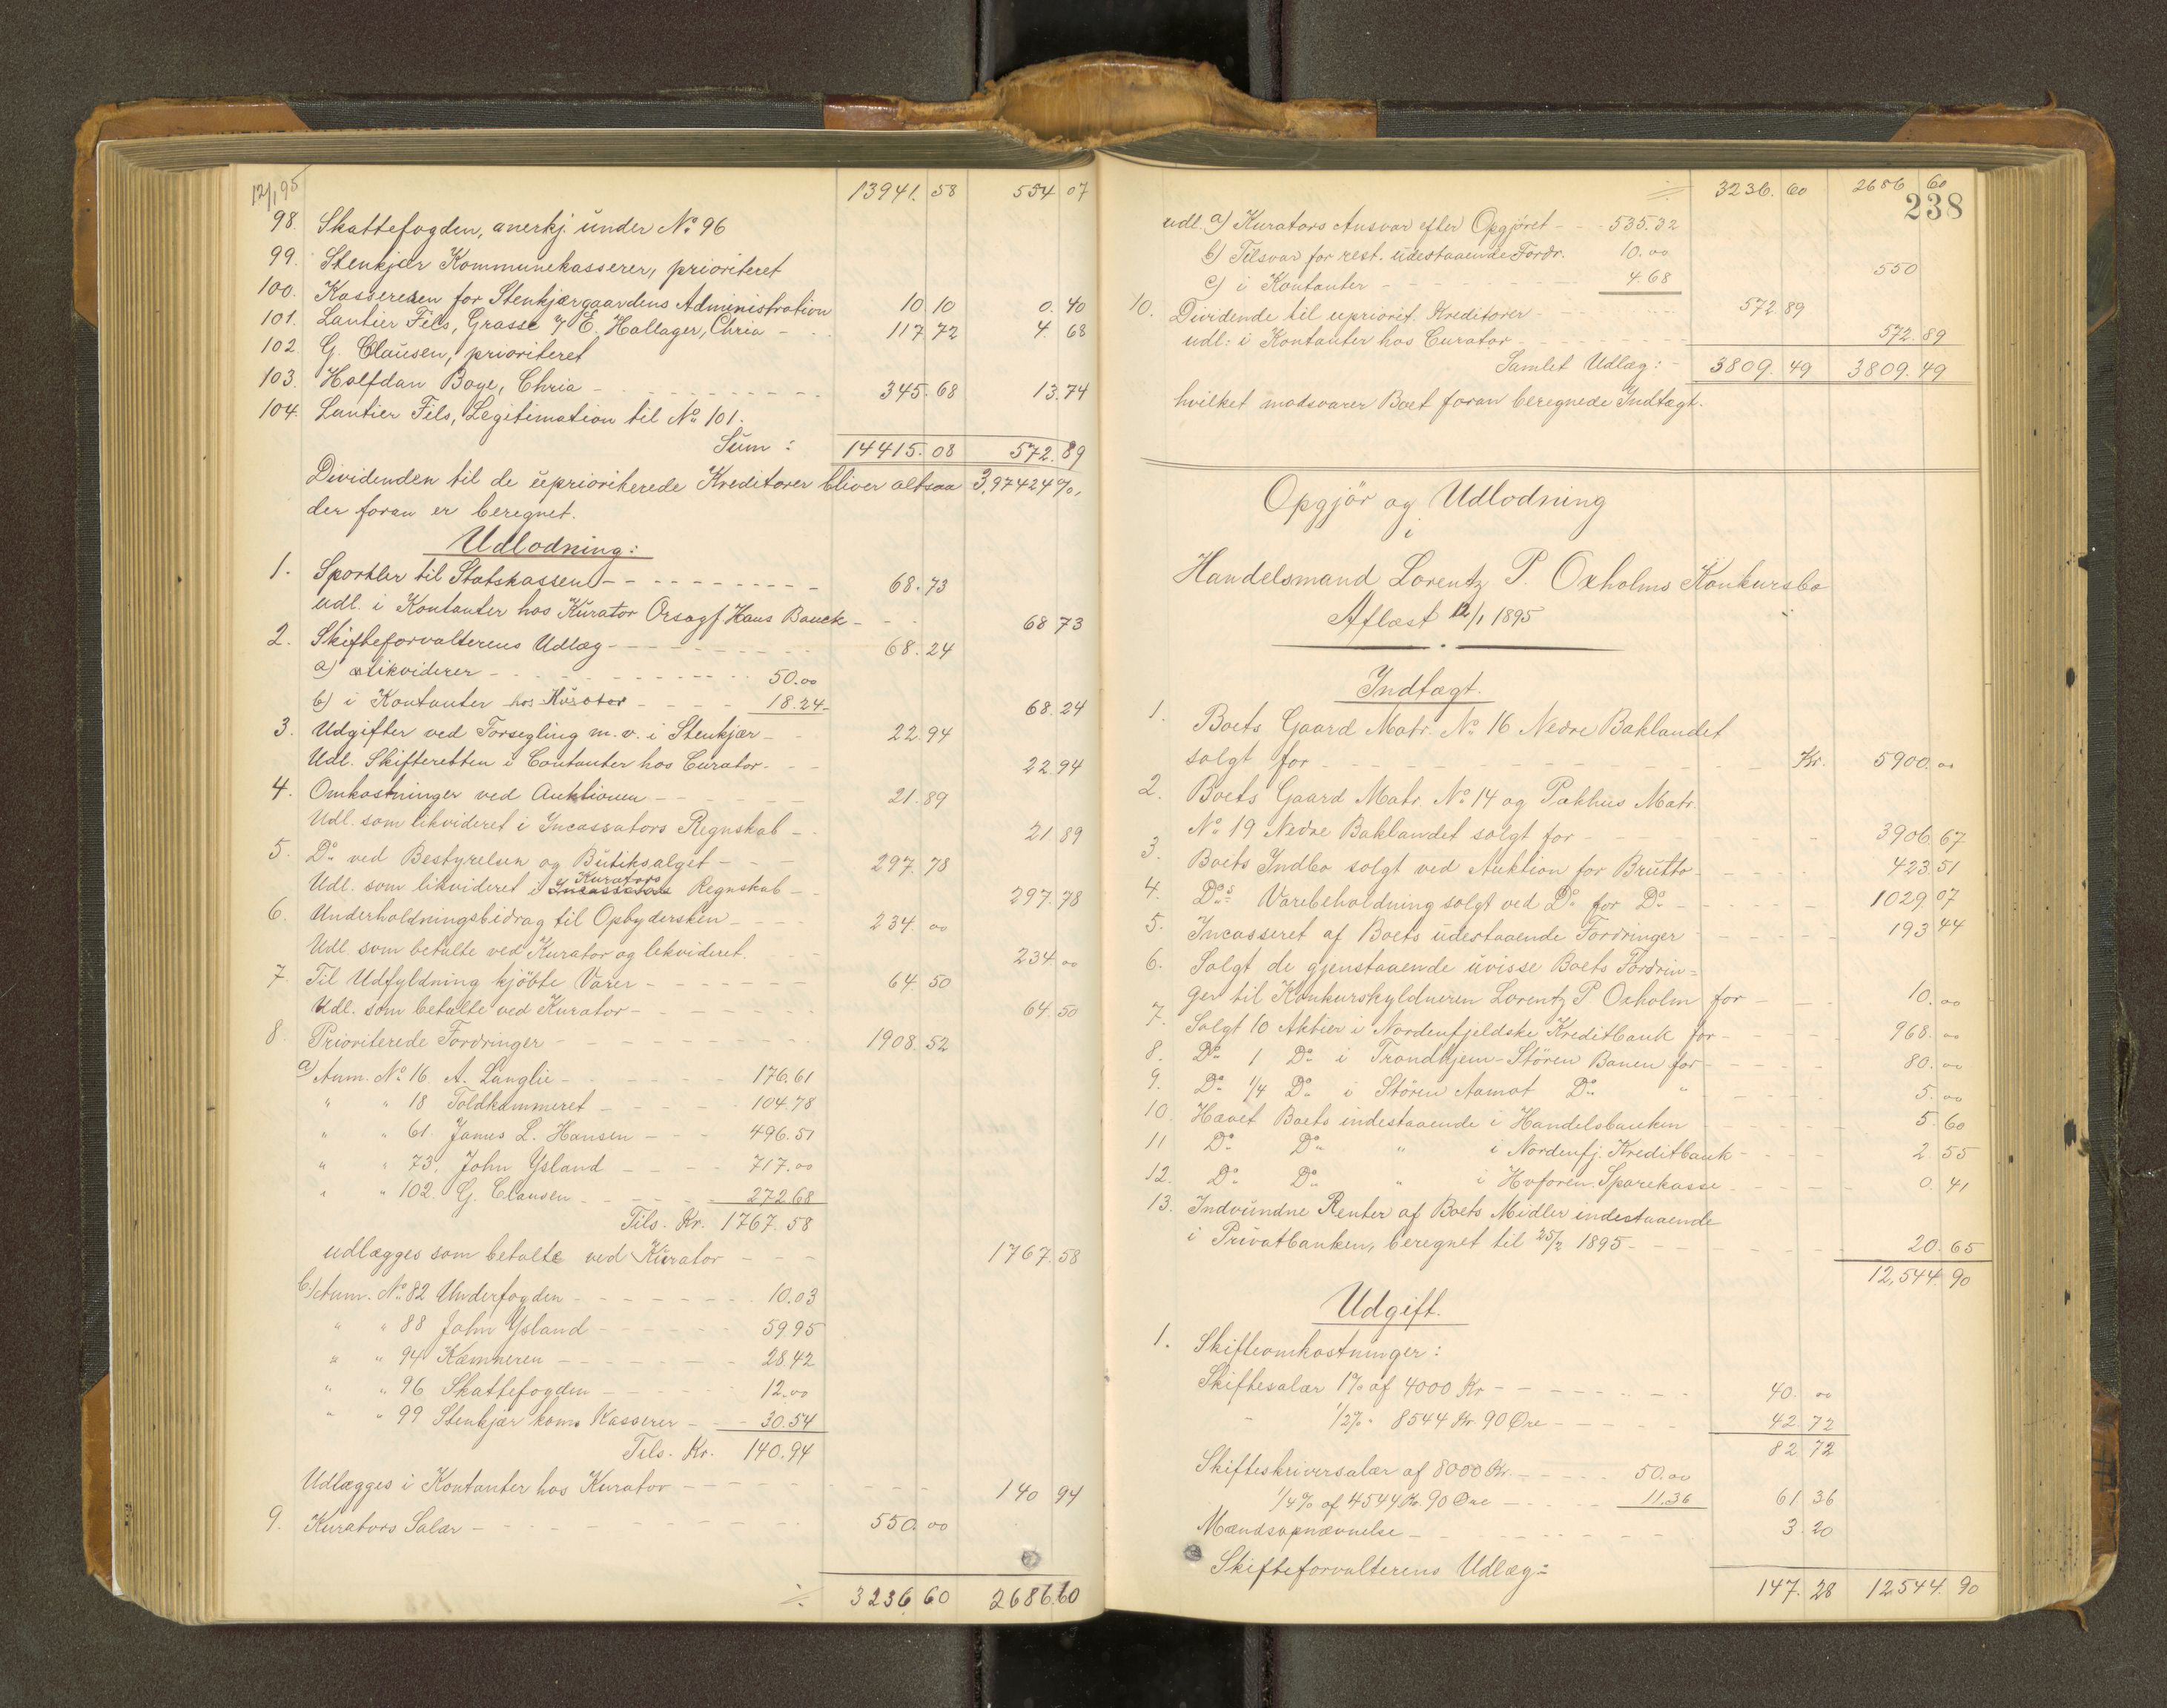 12/1 95 13941. 58 554 07
98. Skattefogden, anerkj. under No 96
99. Stenkjær Kommunekasserer, prioriteret
100. Kassereren for Stenkjærgaardens Administration 10 10 0. 40
101. Lautier Fils, Grasse v/ E. Hallager, Chria - 117 72 4. 68
102. G. Clausen, prioriteret
103. Halfdan Boye, Chria - 345. 68 13. 74
104. Lautier Fils, Legitimation til No 101.
Sum: 14415. 08 572. 89
Dividenden til de uprioriterede Kreditorer bliver altsaa 3,97424%,
der foran er beregnet.
Udlodning:
1. Sportler til Statskassen - 68. 73
udl. i Kontanter hos Kurator Orsagf. Hans Bauck - 68 73
2. Skifteforvalterens Udlæg - 68. 24
a) likviderer - 50.00
b) i Kontanter hos Kurator - 18.24
68. 24
3. Udgifter ved Forsegling m.v. i Stenkjær - 22. 94
Udl. Skifteretten i Contanter hos Curator. - 22 94
4. Omkostninger ved Auktionen - 21. 89
Udl. som likvideret i Incassators Regnskab - 21 89
5. Do ved Bestyrelsen og Butiksalget - 297. 78
Udl. som likvideret i Incassators Kurators Regnskab - 297. 78
6. Underholdningsbidrag til Opbydersken - 234. 00
Udl. som betalte ved Kurator og lekvideret. 234 00
7. Til Udfyldning kjöbte Varer - 64. 50
Udl. som betalte ved Kurator - 64. 50
8. Prioriterede Fordringer - 1908. 52
a) Anm. No 16 A. Langlie - 176.61
" " 18 Toldkammeret - 104.78
" " 61. James L. Hansen - 496.51
" " 73. John Ysland - 717.00
" " 102. G. Clausen - 272.68
Tils. Kr. 1767. 58
udlægges som betalte ved Kurator - 1767. 58
b) Anm. No 82 Underfogden - 10.03
" " 88 John Ysland - 59.95
" " 94 Kæmneren - 28.42
" " 96 Skattefogden - 12.00
" " 99 Stenkjær kom. Kasserer - 30.54
Tils. Kr. 140.94
Udlægges i Kontanter hos Kurator - 140 94
9. Kurators Salær - 550. 00
3236. 60 2686. 60
3236. 60 2686 60
238
udl. a) Kurators Ansvar efter Opgjöret - 535.32
b) Tilsvar for rest. udestaaende Fordr. 10.00
c) i Kontanter - 4.68
550
10. Dividende til upriorit. Kreditorer - 572. 89
udl: i Kontanter hos Curator - 572. 89
Samlet Udlæg: - 3809. 49 3809. 49
hvilket modsvarer Boet foran beregnede Indtægt.
Opgjör og Udlodning
i
Handelsmand Lorentz P. Oxholms Konkursbo
Aflæst 12/1 1895
Indtægt.
1. Boets Gaard Matr. No 16 Nedre Baklandet
solgt for - Kr. 5900. 00
2. Boets Gaard Matr. No 14 og Pakhus Matr.
No 19 Nedre Baklandet solgt for - 3906. 67
3. Boets Indbo solgt ved Auktion for Brutto - 423. 51
4. Dos Varebeholdning solgt ved Do for Do - 1029 07
5. Incasseret af Boets udestaaende Fordringer - 193 44
6. Solgt de gjenstaaende uvisse Boets Fordrin=
ger til Konkursskyldneren Lorentz P Oxholm for - 10. 00
7. Solgt 10 Aktier i Nordenfjeldske Kreditbank for - 968. 00
8. Do 1 Do i Trondhjem-Stören Banen for - 80. 00
9. Do 1/4 Do i Stören Aamot Do " - 5. 00
10. Hævet Boets indestaaende i Handelsbanken 5. 60
11 Do Do " i Nordenfj. Kreditbank - 2. 55
12. Do Do " i Hvforen. Sparekasse - 0. 41
13. Indvundne Renter af Boets Midler indestaaende
i Privatbanken, beregnet til 25/2 1895 - 20. 65
12,544. 90
Udgift.
1. Skifteomkostninger:
Skiftesalær 1% af 4000 Kr - 40. 00
" 1/2% " 8544 Kr 90 Øre - 42. 72
82 72
Skifteskriversalær af 8000 Kr. - 50.00
1/4% af 4544 Kr. 90 Øre - 11.36 61 36
Mændsopnævnelse - 3. 20
Skifteforvalterens Udlæg:
147. 28 12544. 90